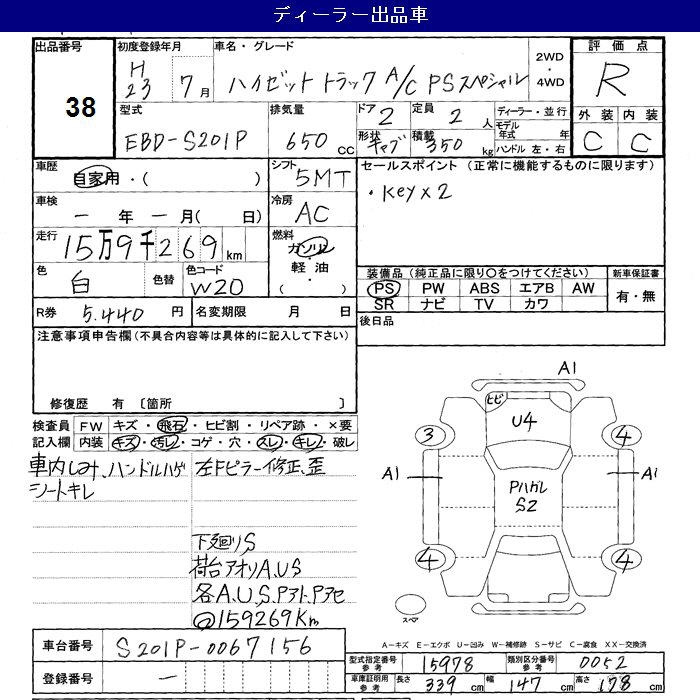 ディーラー出品車
出品番号 38
初度登録年月 H23 7月
車名・グレード ハイゼット トラック A/C PSスペシャル
2WD・4WD
評価点 R
外装 C 内装 C
型式 EBD-S201P
排気量 650 CC
ドア 2 定員 2人
形状 キャブ 積載 350 kg
ディーラー・並行
モデル年式 年
ハンドル 左・右
車歴 自家用・( )
シフト 5MT
セールスポイント (正常に機能するものに限ります)
・Key×2
車検 ー年ー月( 日)
冷房 AC
走行 15万9千269 km
燃料 ガソリン・軽油・( )
色 白 色替 色コード W20
装備品 (純正品に限り○をつけてください) 新車保証書
PS PW ABS エアB AW 有・無
SR ナビ TV カワ
R券 5.440 円 名変期限 月 日
後日品
注意事項申告欄(不具合内容等は具体的に記入して下さい)
修復歴 有 〔箇所 〕
検査員 FW キズ・飛石・ヒビ割・リペア跡・×要
記入欄 内装 キズ・汚レ・コゲ・穴・スレ・キレ・破レ
車内しみ、ハンドルハゲ
シートキレ
左Fピラー修正、歪
下廻りS
荷台アオリA.U.S
各A.U.S.Pアト.Pアセ
@159269Km
A1
ヒビ
U4
3
4
A1
A1
Pハガレ
S2
4
4
スペア
車台番号 S201P-0067156
登録番号 ー
A-キズ E-エクボ U-凹み W-補修跡 S-サビ C-腐食 XX-交換済
型式指定番号 参考 15978 類別区分番号 参考 0052
車庫証明用 参考 長さ 339 cm 幅 147 cm 高さ 178 cm